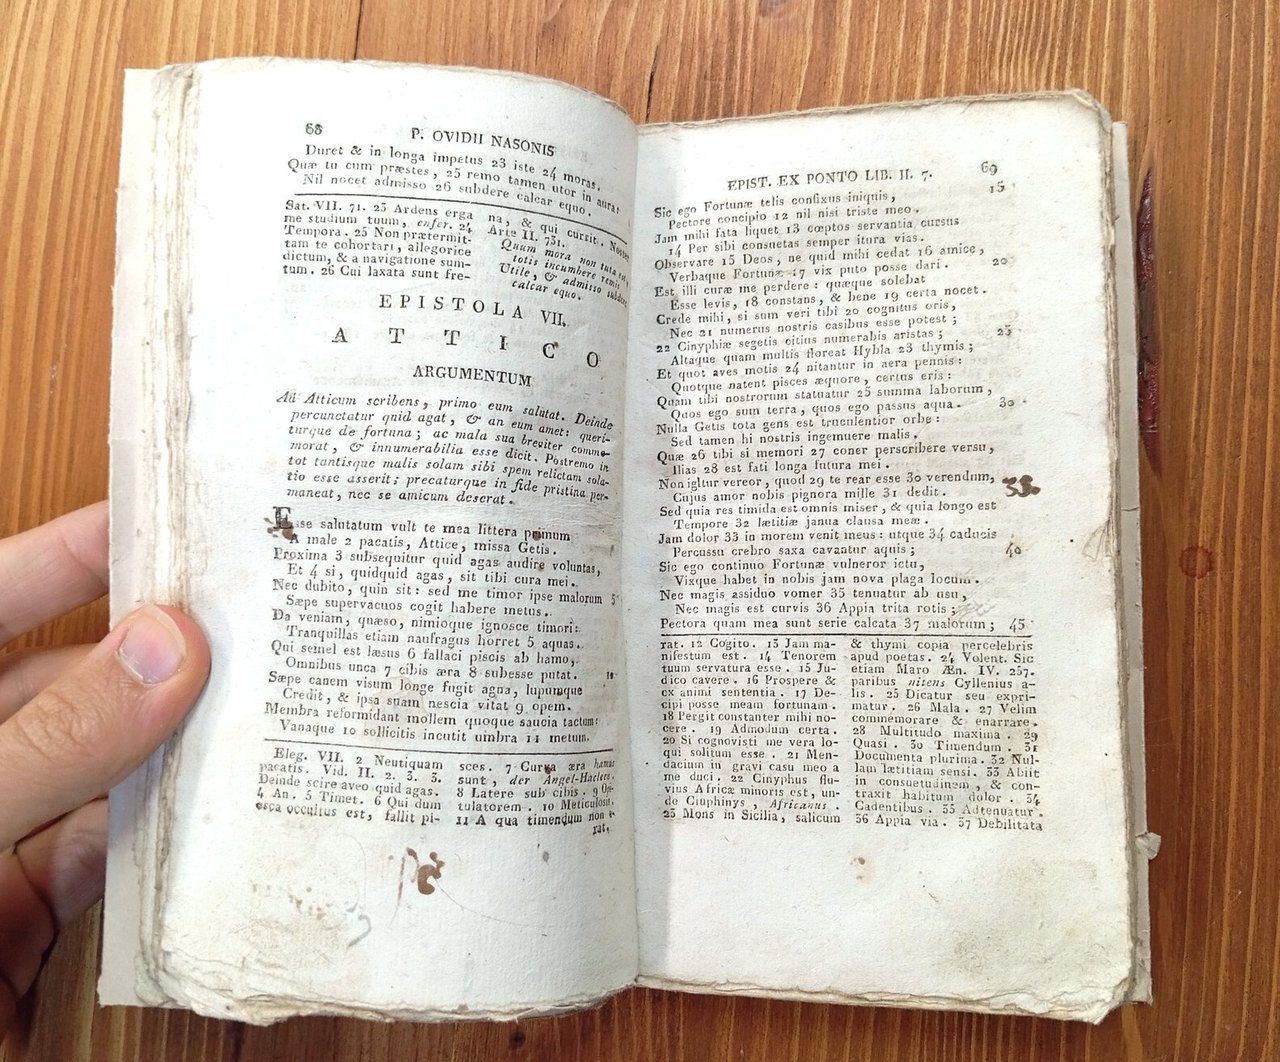 68
P. OVIDII NASONIS
Duret & in longa impetus 23 iste 24 moras.
Quæ tu cum præstes, 25 remo tamen utor in aura:
Nil nocet admisso 26 subdere calcar equo.
Sat. VII. 71. 23 Ardens erga
me studium tuum, enfer. 24
Tempora. 25 Non prætermit-
tam te cohortari, allegorice
dictum, & a navigatione sum-
tum. 26 Cui laxata sunt fre-
na, & qui currit.
Arte II. 731.
Quum mora non tuta est,
totis incumbere remis
Utile, & admisso subdere
calcar equo.
EPISTOLA VII.
ATTICO
ARGUMENTUM
Ad Atticum scribens, primo eum salutat. Deinde
percunctatur quid agat, & an eum amet: queri-
turque de fortuna; ac mala sua breviter comme-
morat, & innumerabilia esse dicit. Postremo in
tot tantisque malis solam sibi spem relictam sola-
tio esse asserit; precaturque in fide pristina per-
maneat, nec se amicum deserat.
Esse salutatum vult te mea littera primum
A male 2 pacatis, Attice, missa Getis.
Proxima 3 subsequitur quid agas audire voluntas,
Et 4 si, quidquid agas, sit tibi cura mei.
Nec dubito, quin sit: sed me timor ipse malorum 5
Sæpe supervacuos cogit habere metus.
Da veniam, quæso, nimioque ignosce timori:
Tranquillas etiam naufragus horret 5 aquas.
Qui semel est læsus 6 fallaci piscis ab hamo,
Omnibus unca 7 cibis æra 8 subesse putat. 10
Sæpe canem visum longe fugit agna, lupumque
Credit, & ipsa suam nescia vitat 9 opem.
Membra reformidant mollem quoque saucia tactum:
Vanaque 10 sollicitis incutit umbra 11 metum.
Eleg. VII. 2 Neutiquam
pacatis. Vid. II. 2. 3. 3.
Deinde scire aveo quid agas.
4 An. 5 Timet. 6 Qui dum
esca occultus est, fallit pi-
sces. 7 Curva æra hamus
sunt, der Angel-Hacken.
8 Latere sub cibis. 9 Opi-
tulatorem. 10 Meticulosit.
11 A qua timendum non e-
rat.
EPIST. EX PONTO LIB. II. 7.
69
Sic ego Fortunæ telis confixus iniquis, 15
Pectore concipio 12 nil nisi triste meo.
Jam mihi fata liquet 13 cœptos servantia cursus
14 Per sibi consuetas semper itura vias.
Observare 15 Deos, ne quid mihi cedat 16 amice,
Verbaque Fortunæ 17 vix puto posse dari. 20
Est illi curæ me perdere: quæque solebat
Esse levis, 18 constans, & bene 19 certa nocet.
Crede mihi, si sum veri tibi 20 cognitus oris,
Nec 21 numerus nostris casibus esse potest;
22 Cinyphiæ segetis citius numerabis aristas; 25
Altaque quam multis floreat Hybla 23 thymis;
Et quot aves motis 24 nitantur in aera pennis:
Quotque natent pisces æquore, certus eris:
Quam tibi nostrorum statuatur 25 summa laborum,
Quos ego sum terra, quos ego passus aqua. 30
Nulla Getis tota gens est truculentior orbe:
Sed tamen hi nostris ingemuere malis.
Quæ 26 tibi si memori 27 coner perscribere versu,
Ilias 28 est fati longa futura mei.
Non igitur vereor, quod 29 te rear esse 30 verendum,
Cujus amor nobis pignora mille 31 dedit.
Sed quia res timida est omnis miser, & quia longo est
Tempore 32 lætitiæ janua clausa meæ.
Jam dolor 33 in morem venit meus: utque 34 caducis
Percussu crebro saxa cavantur aquis; 40
Sic ego continuo Fortunæ vulneror ictu,
Vixque habet in nobis jam nova plaga locum.
Nec magis assiduo vomer 35 tenuatur ab usu,
Nec magis est curvis 36 Appia trita rotis;
Pectora quam mea sunt serie calcata 37 malorum; 45
rat. 12 Cogito. 13 Jam ma-
nifestum est. 14 Tenorem
tuum servatura esse. 15 Ju-
dico cavere. 16 Prospere &
ex animi sententia. 17 De-
cipi posse meam fortunam.
18 Pergit constanter mihi no-
cere. 19 Admodum certa.
20 Si cognovisti me vera lo-
qui solitum esse. 21 Men-
dacium in gravi casu meo a
me duci. 22 Cinyphus flu-
vius Africæ minoris est, un-
de Cinphinys, Africanus.
23 Mons in Sicilia, salicum
& thymi copia percelebris
apud poetas. 24 Volent. Sic
etiam Maro Æn. IV. 257.
paribus nitens Cyllenius a-
lis. 25 Dicatur seu expri-
matur. 26 Mala. 27 Velim
commemorare & enarrare.
28 Multitudo maxima. 29
Quasi. 30 Timendum. 31
Documenta plurima. 32 Nul-
lam lætitiam sensi. 33 Abiit
in consuetudinem, & con-
traxit habitum dolor. 34
Cadentibus. 35 Adtenuatur.
36 Appia via. 37 Debilitata